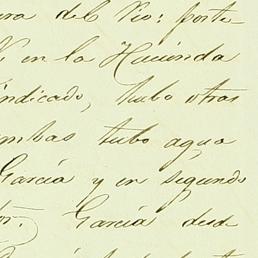 ura del Rio: forte-
en la Hacienda
indicado, hubo otras
ambas tubo agua
Garcia y en segundo
Garcia desd